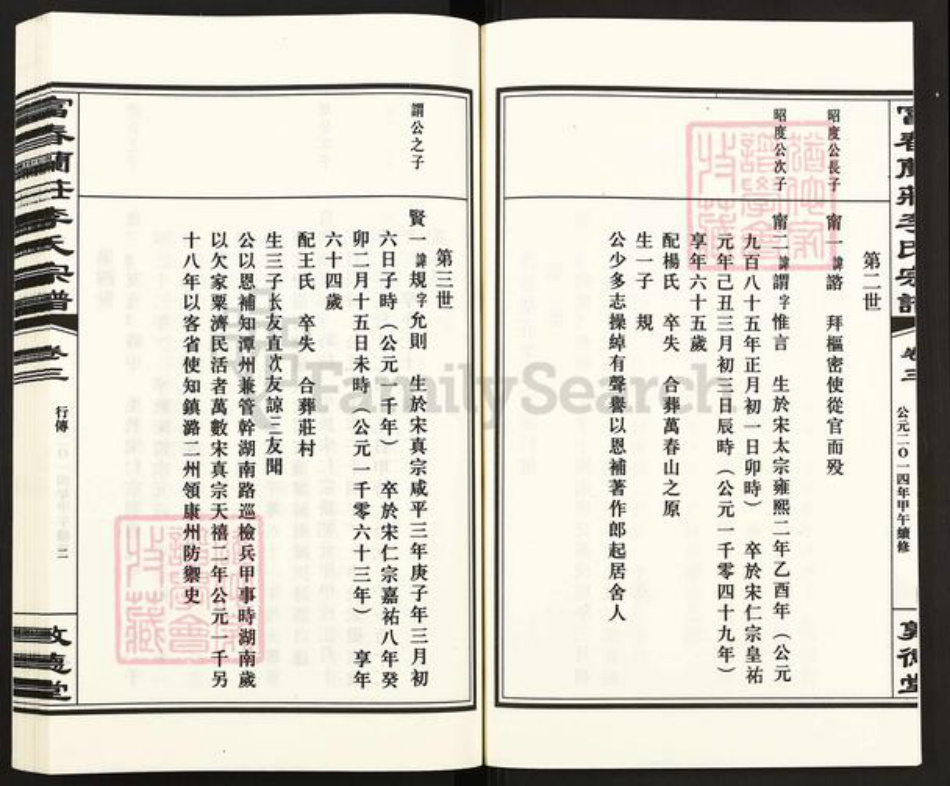 富春蘭莊李氏宗譜
卷三
公元二〇一四年甲午續修
敦德堂
第二世
昭度公長子
甯一 諱諮 拜樞密使從官而歿
昭度公次子
甯二 諱謂字惟言 生於宋太宗雍熙二年乙酉年（公元
九百八十五年正月初一日卯時） 卒於宋仁宗皇祐
元年己丑三月初三日辰時（公元一千零四十九年）
享年六十五歲
配楊氏 卒失 合葬萬春山之原
生一子 規
公少多志操綽有聲譽以恩補著作郎起居舍人
第三世
謂公之子
賢一 諱規字允則 生於宋真宗咸平三年庚子年三月初
六日子時（公元一千年） 卒於宋仁宗嘉祐八年癸
卯二月十五日未時（公元一千零六十三年） 享年
六十四歲
配王氏 卒失 合葬莊村
生三子长友直次友諒三友聞
公以恩補知潭州兼管幹湖南路巡檢兵甲事時湖南歲
以欠家粟濟民活者萬數宋真宗天禧二年公元一千另
十八年以客省使知鎮潞二州領康州防禦史
富春蘭莊李氏宗譜
卷三
行傳
二
敦德堂
FamilySearch